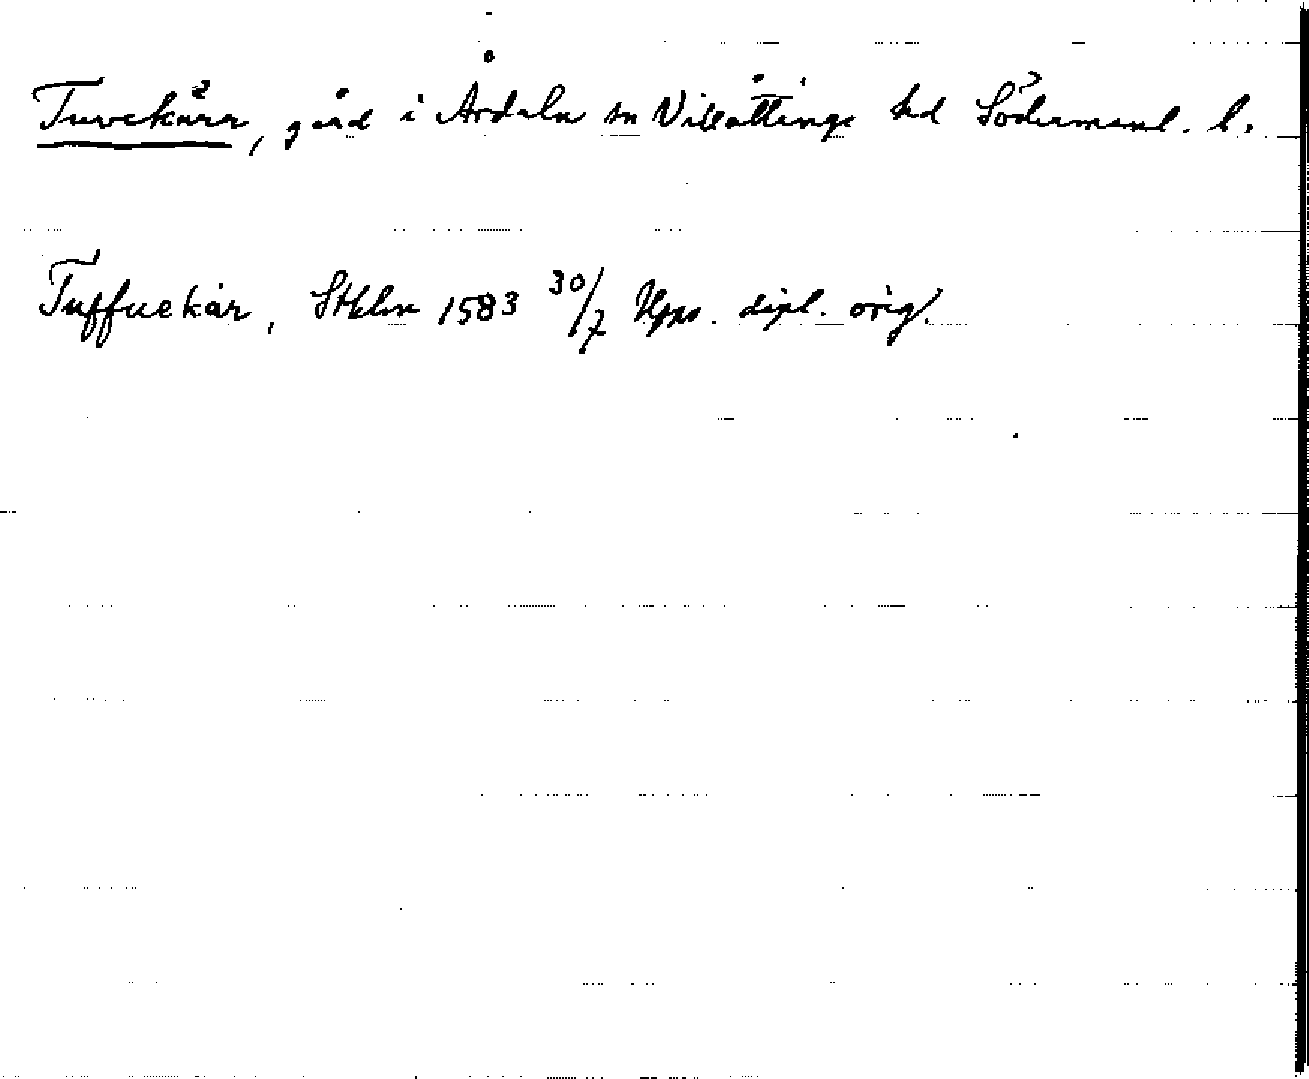 Tuvekärr, gård i Årdala sn Villåttinge hd Södermanl. l.
Tuffuekär, Sthlm 1583 30/7 Upps. dipl. orig.